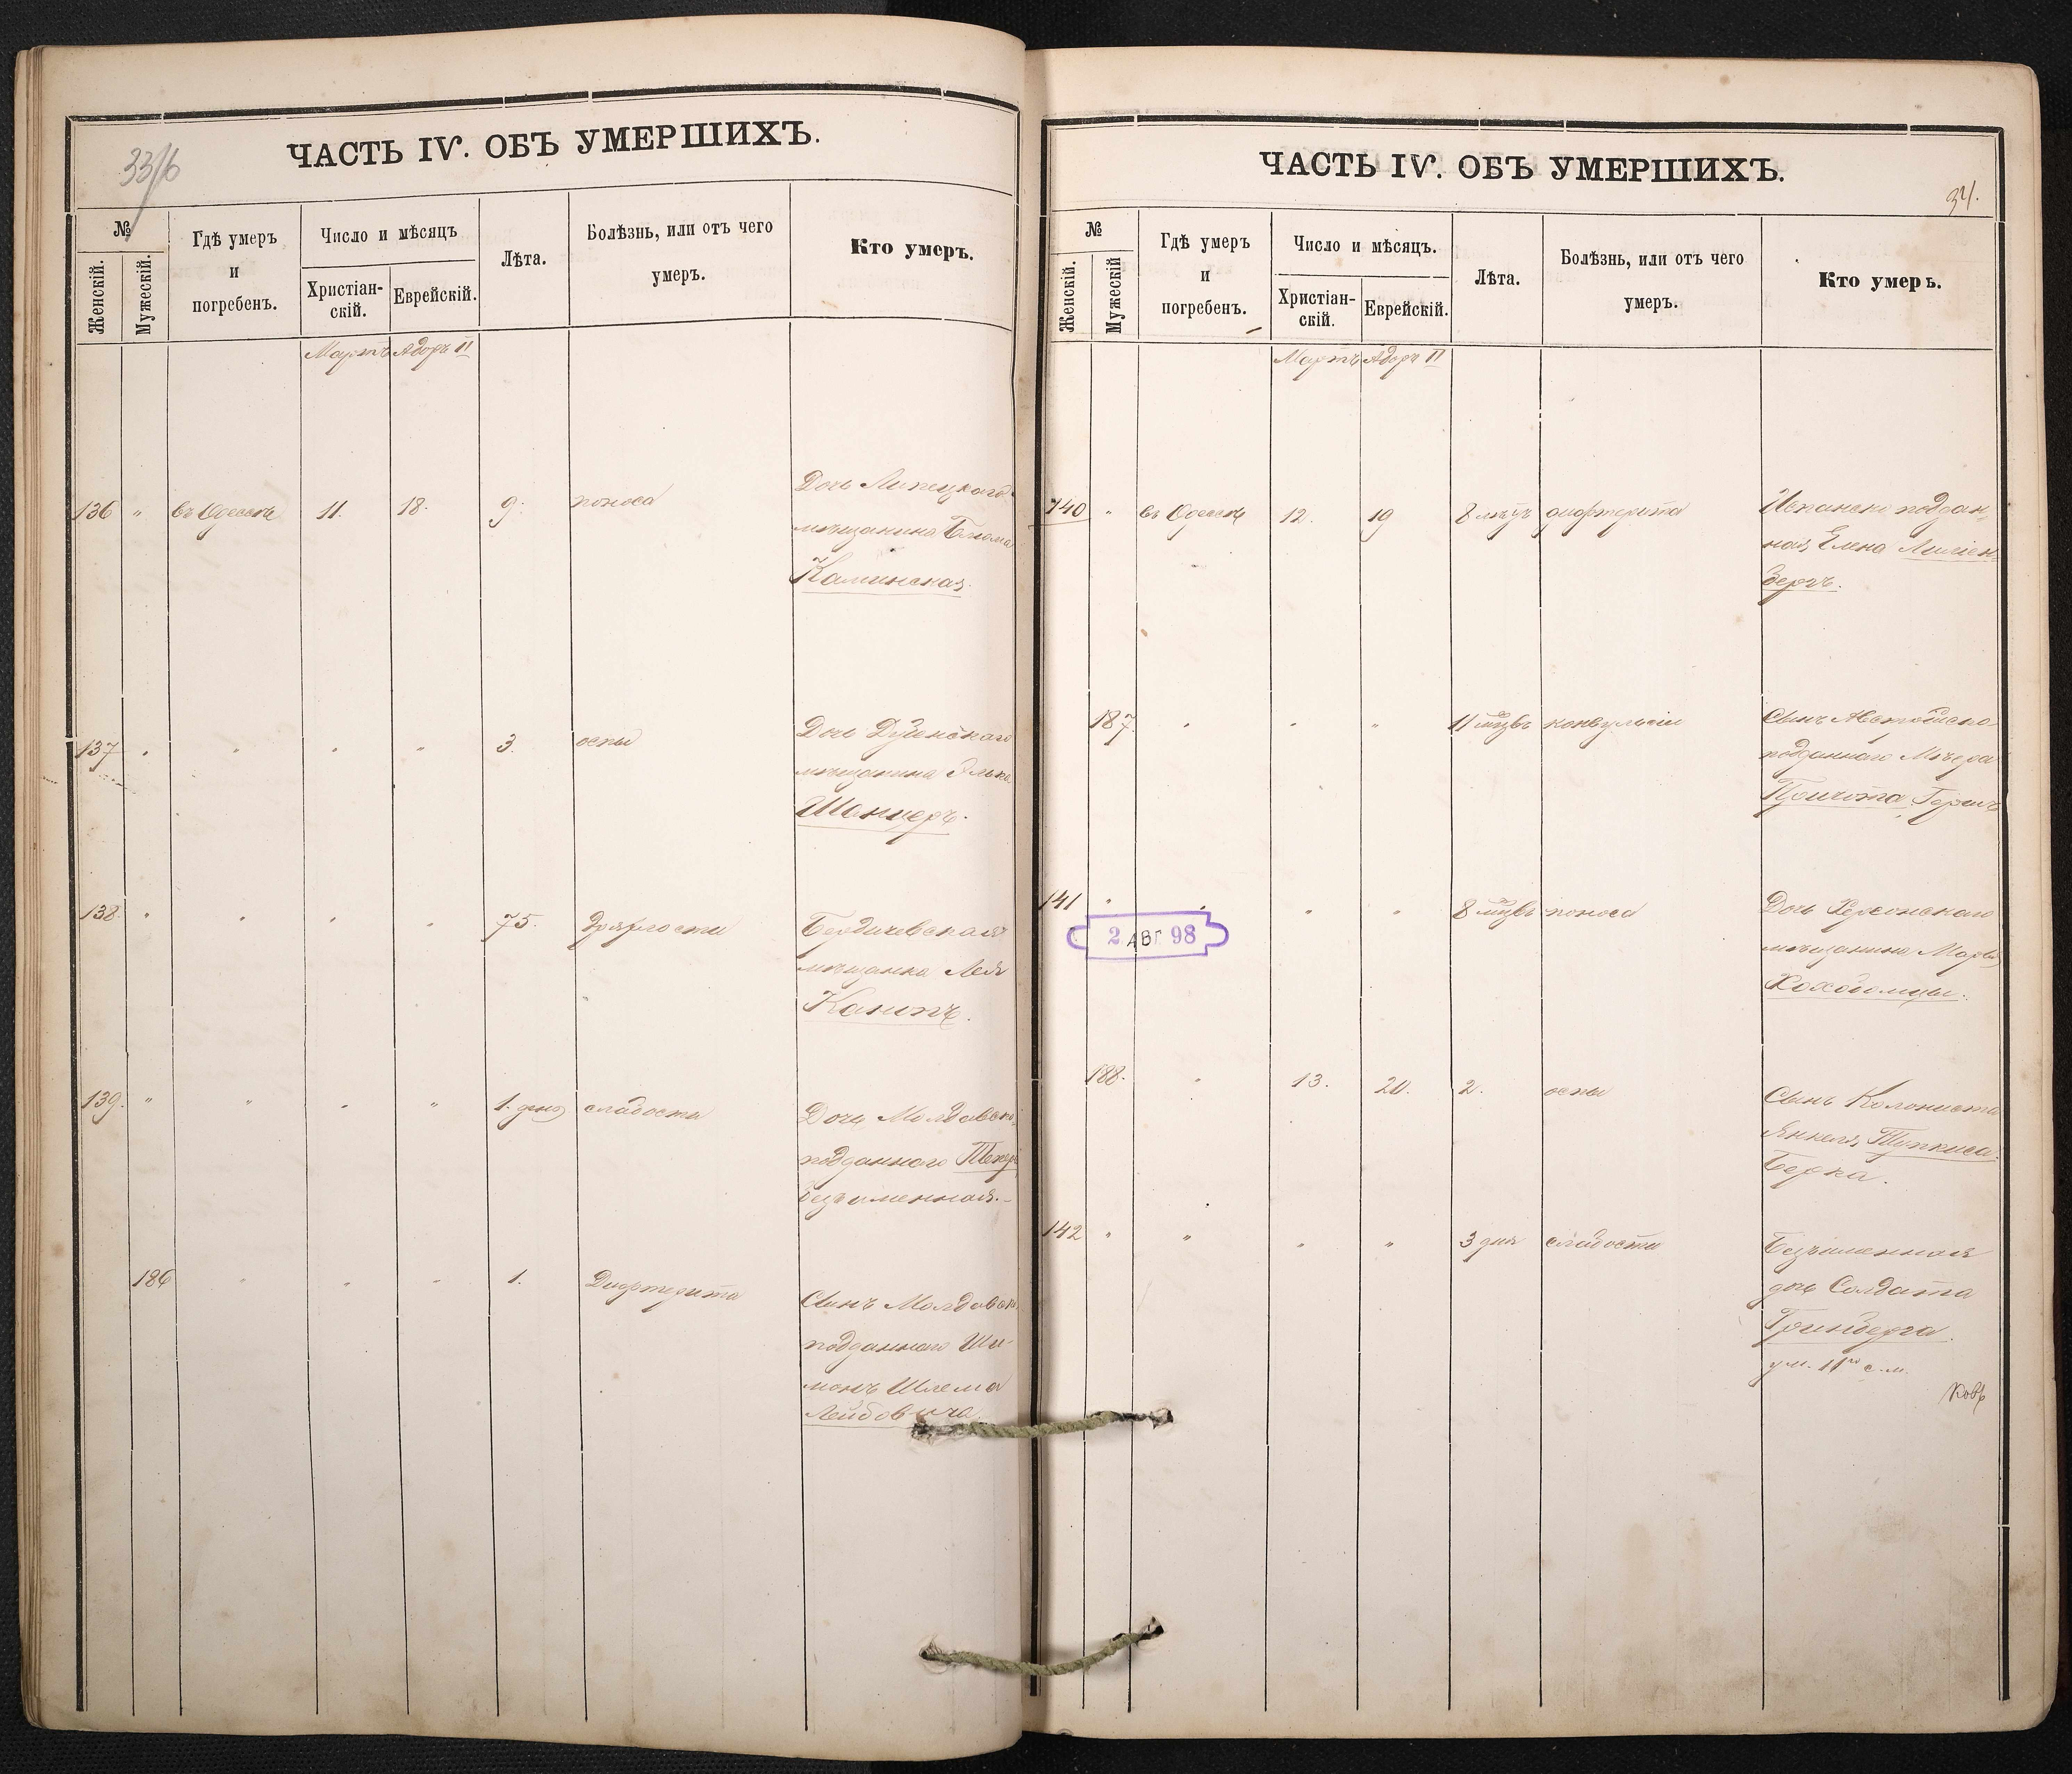 ЧАСТЬ IV. ОБЪ УМЕРШИХЪ.
33/6
№
Женскій.
Мужескій.
Гдѣ умеръ
и
погребенъ.
Число и мѣсяцъ
Христіан-
скій.
Еврейскій.
Лѣта.
Болѣзнь, или отъ чего
умеръ.
Кто умеръ.
Мартъ Адоръ II
136 " въ Одессѣ 11. 18. 9. поноса
Дочь Липецкаго
мѣщанина Блюма
Каминская.
137 " " " " 3. оспы
Дочь Дубенскаго
мѣщанина Элька
138. " " " " 75. Дряхлости
Бердичевская
мѣщанка Лея
139. " " " " 1. день слабости
Дочь Молдавско
подданнаго
безъименная.
186 " " " 1. Дифтерита
Сынъ Молдавск
подданнаго Ши-
монъ Шлема
Лейбовича.
ЧАСТЬ IV. ОБЪ УМЕРШИХЪ.
34.
№
Женскій.
Мужескій
Гдѣ умеръ
и
погребенъ.
Число и мѣсяцъ.
Христіан-
скій.
Еврейскій.
Лѣта.
Болѣзнь, или отъ чего
умеръ.
Кто умеръ.
Мартъ Адоръ II
140 " въ Одессѣ 12. 19 8 мѣц дифтерита
Испанско поддан-
ная Елена Лиліен-
бергъ.
187. " " " 11 мѣц конвульсіи
Сынъ Австрійско
подданнаго
Герш
141 " " " " 8 мѣц поноса
Дочь Херсонскаго
мѣщанина
2 АВГ 98
188. " 13. 20. 2. оспы
Сынъ Колониста
Янкеля
Берка.
142 " " " " 3 дня слабости
Безъименная
дочь Солдата
Гринберга.
ум. 11го с.м.